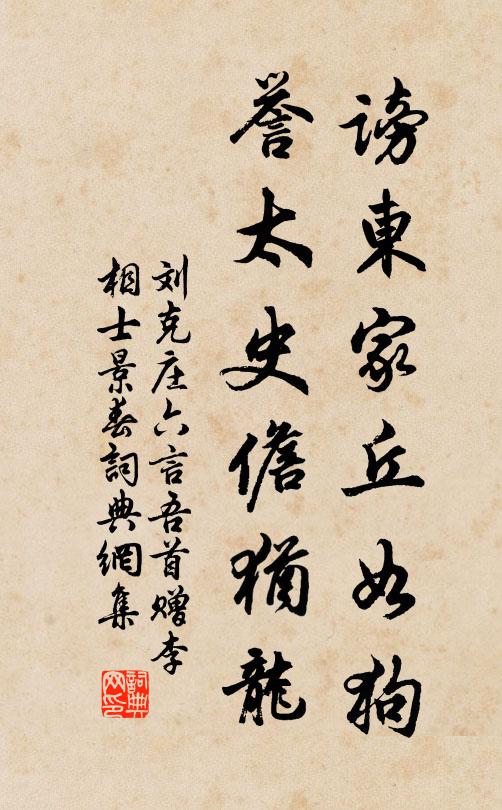 謗東家丘如狗
譽太史儋猶龍
刘克庄六言吾首赠李
相士景春詞典網集
詞典网印